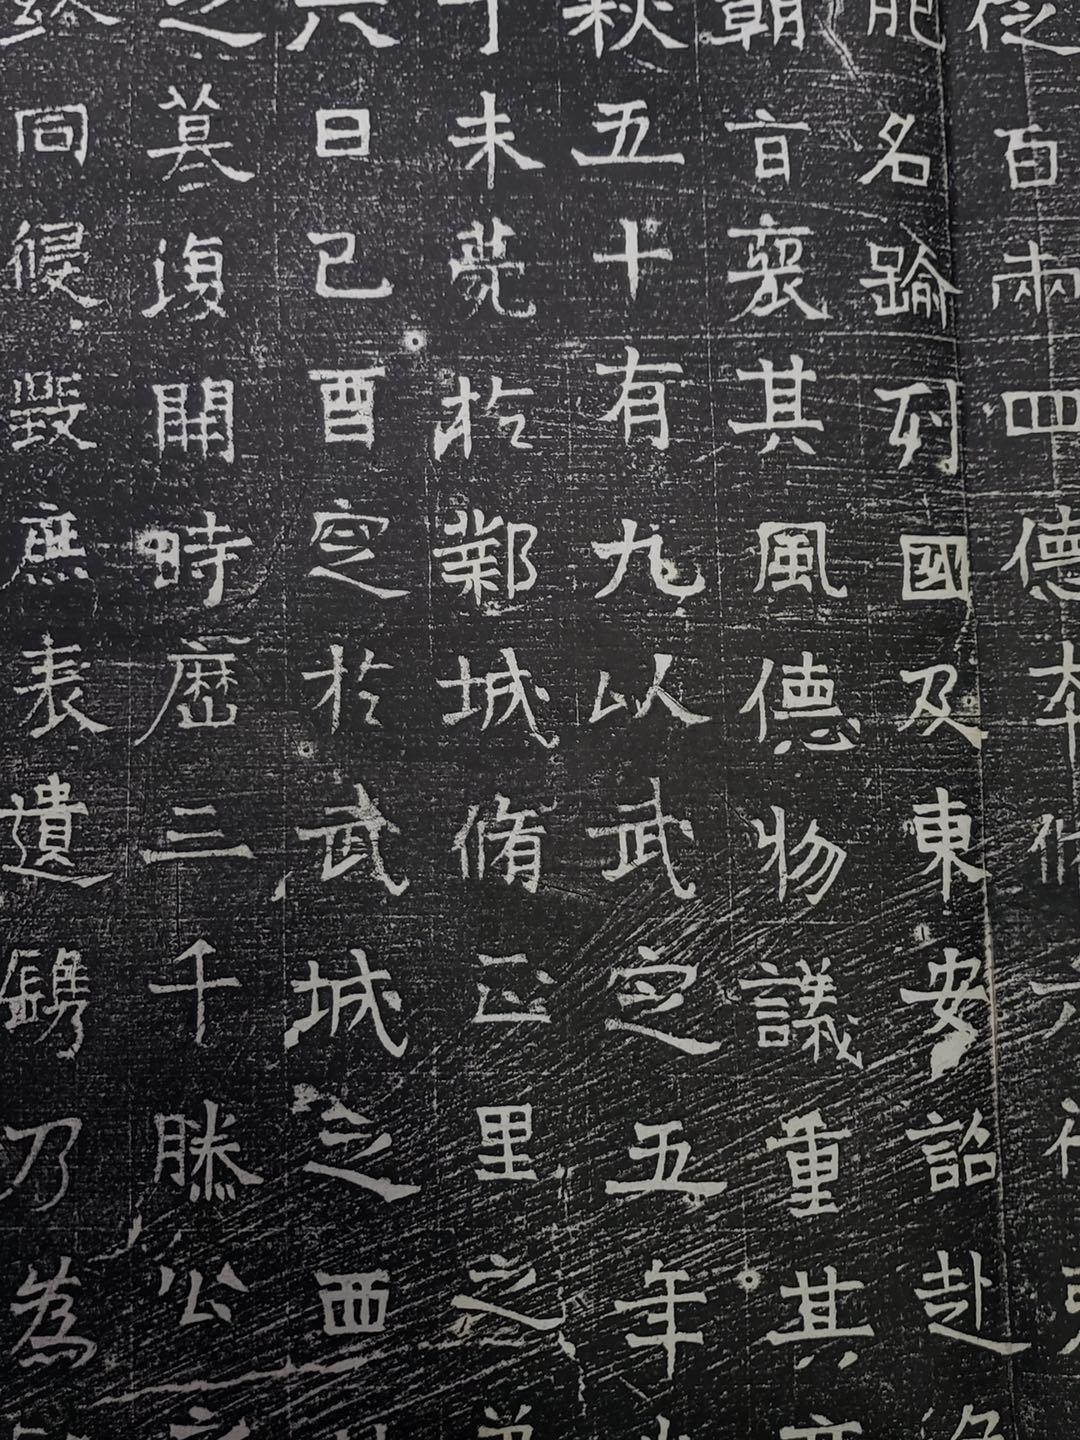 百兩四德
名踰列國及東安詔赴
朝言褒其風德物議重其
秋五十有九以武定五年
未薨於鄴城脩正里之
六日己酉定於武城之西
之墓復開時歷三千滕公
同侵毀庶表遺鐫乃為